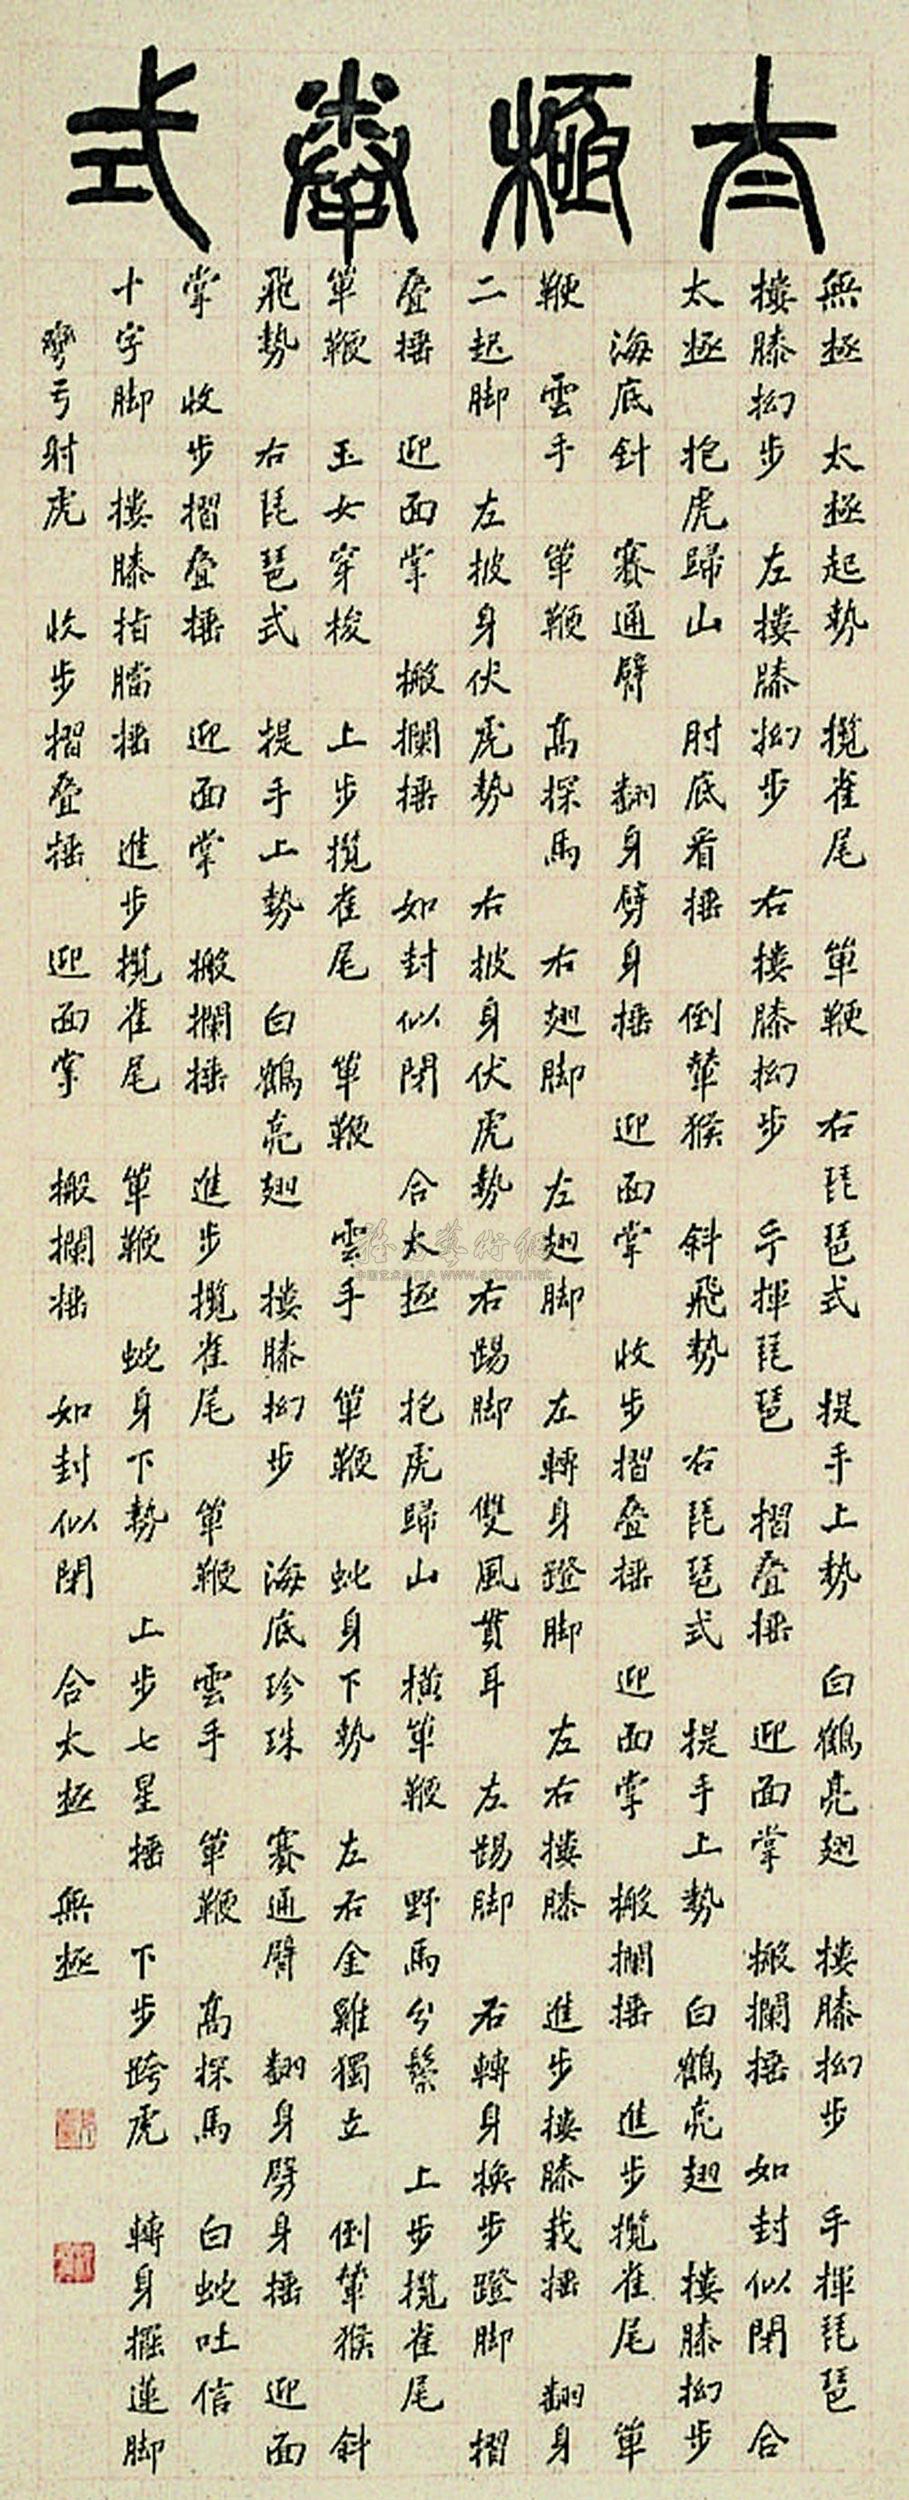 太極拳式
無極 太極起勢 攬雀尾 單鞭 右琵琶式 提手上勢 白鶴亮翅 摟膝拗步 手揮琵琶
摟膝拗步 左摟膝拗步 右摟膝拗步 手揮琵琶 摺疊捶 迎面掌 搬攔捶 如封似閉 合
太極 抱虎歸山 肘底看捶 倒輦猴 斜飛勢 右琵琶式 提手上勢 白鶴亮翅 摟膝拗步
海底針 賽通臂 翻身劈身捶 迎面掌 收步摺疊捶 迎面掌 搬攔捶 進步攬雀尾 單
鞭 雲手 單鞭 高探馬 右翅脚 左翅脚 左轉身蹬脚 左右摟膝 進步摟膝栽捶 翻身
二起脚 左披身伏虎勢 右披身伏虎勢 右踢脚 雙風貫耳 左踢脚 右轉身換步蹬脚 摺
疊捶 迎面掌 搬攔捶 如封似閉 合太極 抱虎歸山 橫單鞭 野馬分鬃 上步攬雀尾
單鞭 玉女穿梭 上步攬雀尾 單鞭 雲手 單鞭 蛇身下勢 左右金雞獨立 倒輦猴 斜
飛勢 右琵琶式 提手上勢 白鶴亮翅 摟膝拗步 海底珍珠 賽通臂 翻身劈身捶 迎面
掌 收步摺疊捶 迎面掌 搬攔捶 進步攬雀尾 單鞭 雲手 單鞭 高探馬 白蛇吐信
十字脚 摟膝指膛捶 進步攬雀尾 單鞭 蛇身下勢 上步七星捶 下步跨虎 轉身擺蓮脚
彎弓射虎 收步摺疊捶 迎面掌 搬攔捶 如封似閉 合太極 無極
www.artron.net